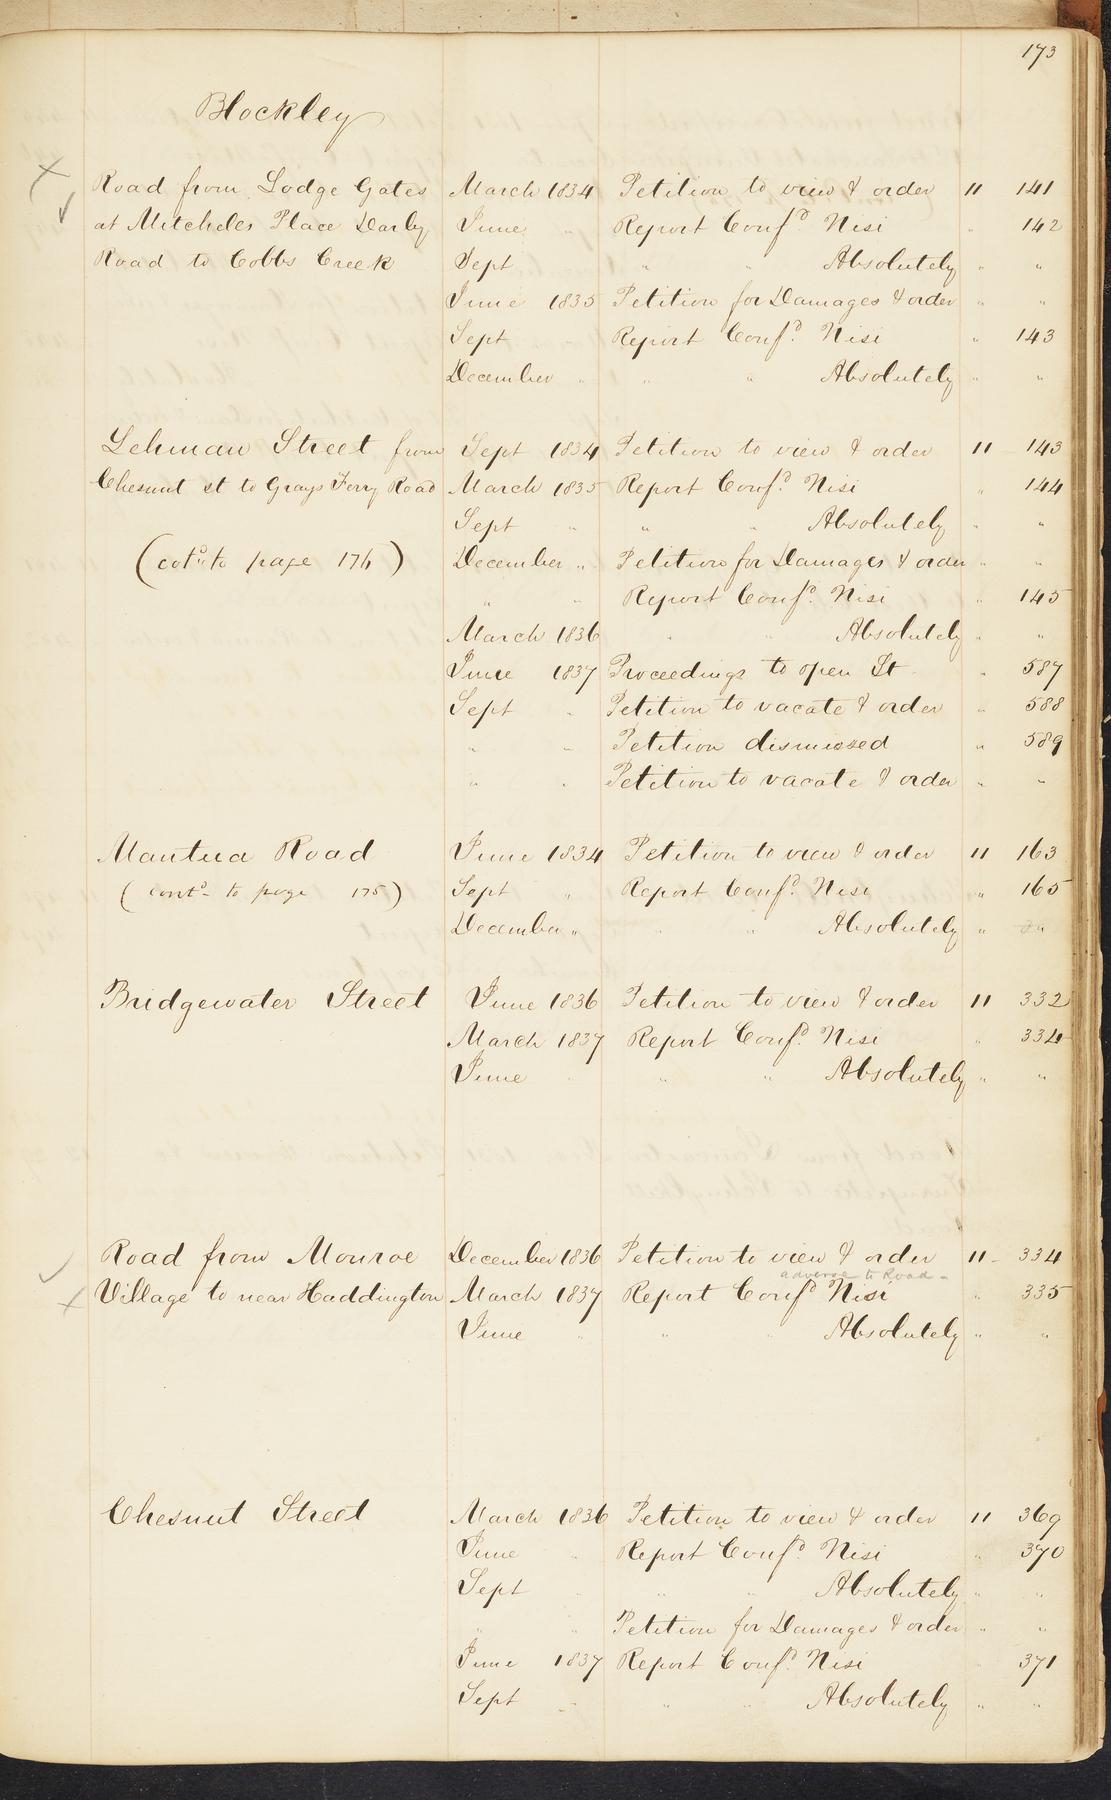 173
Blockley
Road from Lodge Gates March 1834 Petition to view & order 11 141
at Mitcheles Place Darby June " Report Confd. Nisi " 142
Road to Cobbs Creek Sept " " Absolutely " "
June 1835 Petition for Damages & order " "
Sept Report Confd. Nisi " 143
December " " " Absolutely " "
Lehman Street from Sept 1834 Petition to view & order 11 143
Chesnut st to Grays Ferry Road March 1835 Report Confd. Nisi " 144
Sept " " " Absolutely " "
(cotd. to page 176) December " Petition for Damages & order " "
" " Report Confd. Nisi " 145
March 1836 " " Absolutely " "
June 1837 Proceedings to open St " 587
Sept " Petition to vacate & order " 588
" " Petition dismissed " 589
" " Petition to vacate & order " "
Mantua Road June 1834 Petition to view & order 11 163
(contd- to page 175) Sept " Report Confd. Nisi " 165
December " " " Absolutely " "
Bridgewater Street June 1836 Petition to view & order 11 332
March 1837 Report Confd. Nisi " 334
June " " " Absolutely " "
Road from Monroe December 1836 Petition to view & order 11 334
adverse to Road-
Village to near Haddington March 1837 Report Confd Nisi " 335
June " " " Absolutely " "
Chesnut Street March 1836 Petition to view & order 11 369
June " Report Confd. Nisi " 370
Sept " " " Absolutely " "
" " Petition for Damages & order " "
June 1837 Report Confd. Nisi 371
Sept " " " Absolutely " "